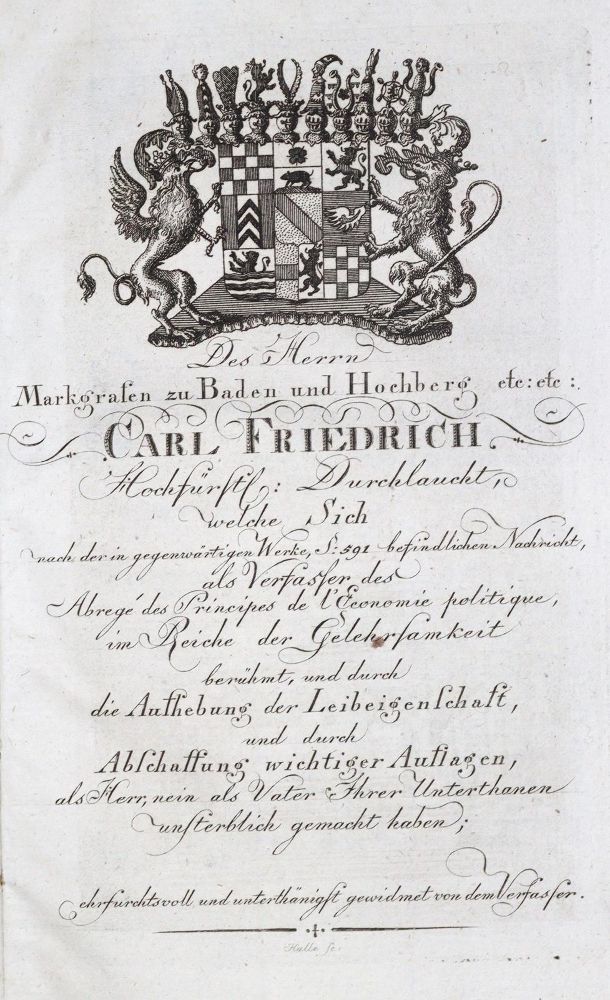 Des Herrn
Markgrafen zu Baden und Hochberg etc: etc:
CARL FRIEDRICH
Hochfürstl: Durchlaucht,
welche Sich
nach der in gegenwärtigen Werke, S: 591 befindlichen Nachricht,
als Verfaſſer des
Abregé des Principes de l'Economie politique,
im Reiche der Gelehrſamkeit
berühmt, und durch
die Aufhebung der Leibeigenſchaft,
und durch
Abſchaffung wichtiger Auflagen,
als Herr, nein als Vater Ihrer Unterthanen
unſterblich gemacht haben;
ehrfurchtsvoll und unterthänigſt gewidmet von dem Verfaſſer.
Halle ſc: